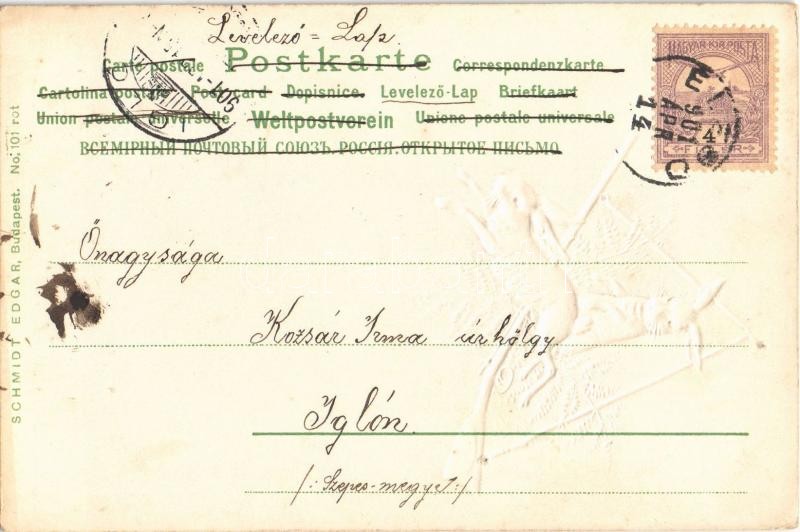 Levelező = Lap
Postkarte
Carte postale Correspondenzkarte
Cartolina postale Postcard Dopisnice. Levelező-Lap Briefkaart
Union postale universelle Weltpostverein Unione postale universale
ВСЕМІРНЫЙ ПОЧТОВЫЙ СОЮЗЪ. РОССІЯ. ОТКРЫТОЕ ПИСЬМО
MAGYAR KIR. POSTA
901
APR
14
SCHMIDT EDGAR, Budapest. No. 101 rot
Önagysága
Kozsár Irma úrhölgy
Iglón
/: Szepes-megye :/